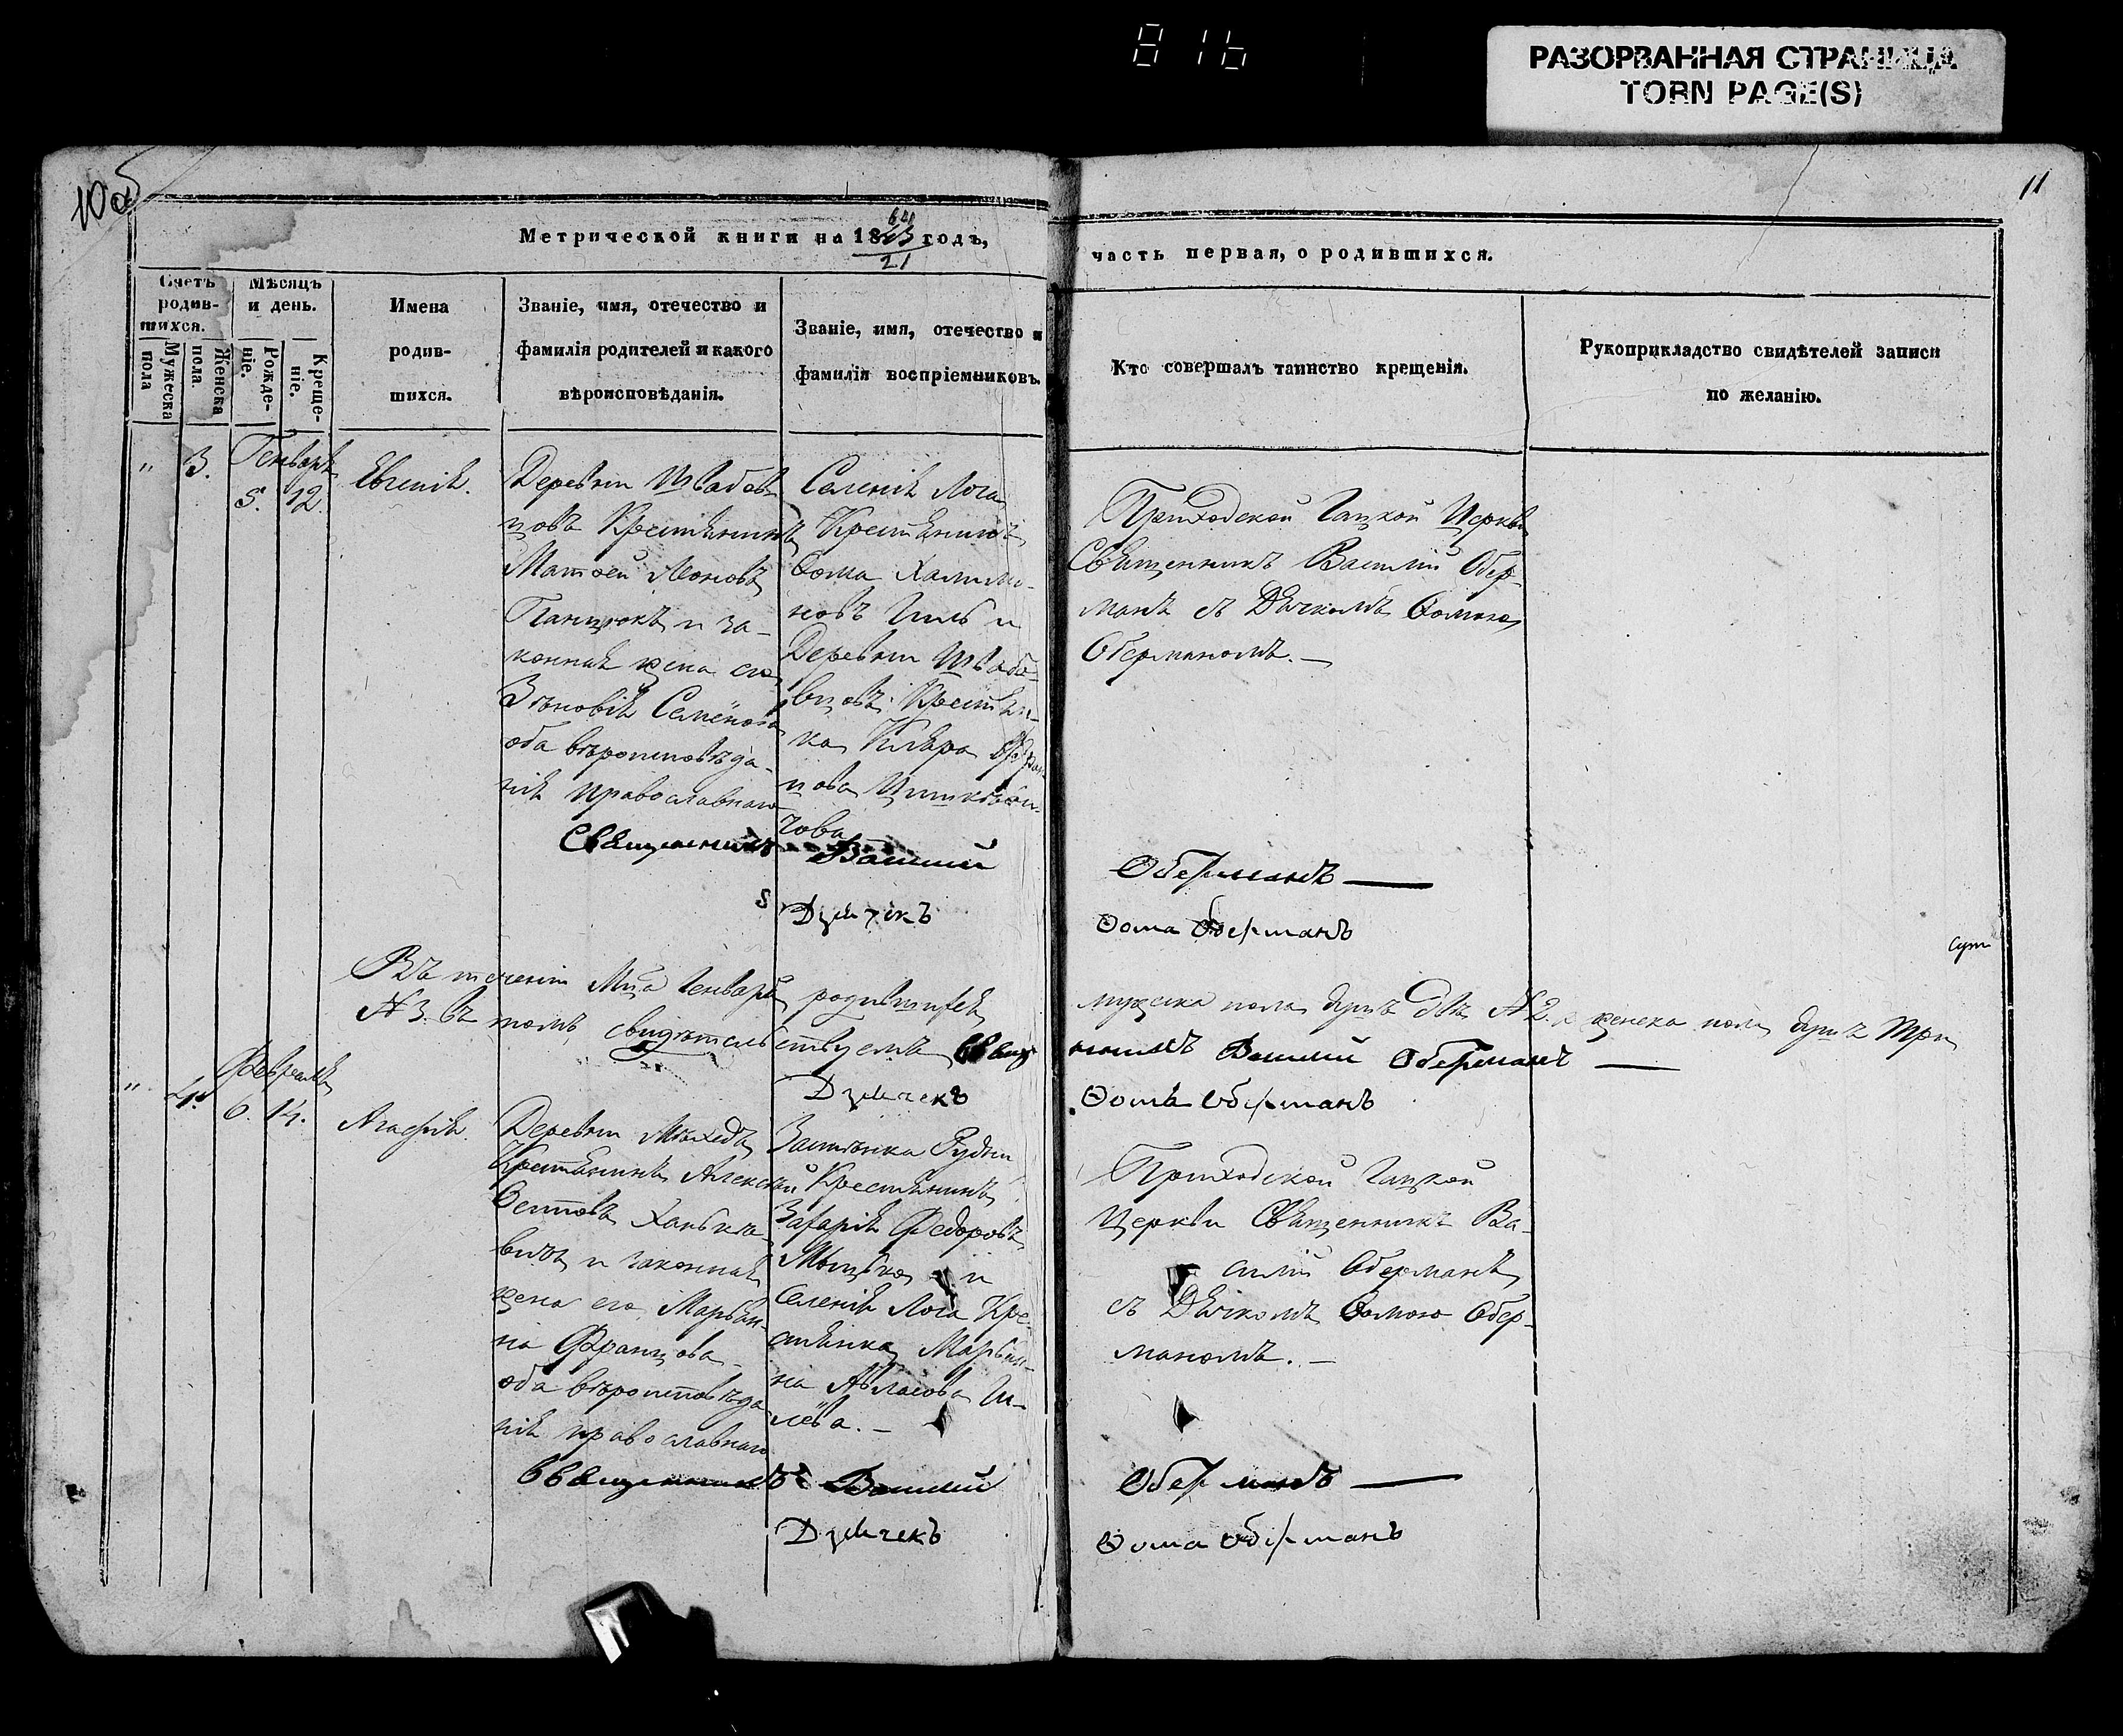 816
РАЗОРВАННАЯ СТРАНИЦА
TORN PAGE(S)
10 об
11
Метрической книги на 18 годъ,
21
часть первая, о родившихся.
Счетъ
родив-
шихся.
Мужеска
пола
Женска
пола.
Мѣсяцъ
и день.
Рожде-
ніе.
Креще-
ніе.
Имена
родив-
шихся.
Званіе, имя, отечество и
фамилія родителей и какого
вѣроисповѣданія.
Званіе, имя, отечество и
фамилія воспріемниковъ.
Кто совершалъ таинство крещенія.
Рукоприкладство свидѣтелей записи
по желанію.
" 3.
Генваря
5. 12.
Евгенія.
Деревни Швабов
цовъ Крестьянинъ
Матѳей Леоновъ
и за-
конная жена его
Зѣновія Семёнова
оба вѣроисповѣда-
нія православнаго
Селенія Лога
Крестьянинъ
Ѳома
новъ и
Деревни Швабо-
вцовъ Крестьян-
ка
цова
чова
Приходской Гацкой Церкви
Священникъ Василій Обер-
манъ съ Дьячкомъ Ѳомою
Оберманомъ.—
Священникъ Василій
Оберманъ —
Дьячекъ
Ѳома Оберманъ
Въ теченіи Мца Генваря родившихся
мужеска пола душъ двѣ №2. а женска пола душъ три
№3. въ томъ свидѣтельствуемъ Свяще
нникъ Василій Оберманъ —
Дьячекъ
Ѳома Оберманъ
" 4.
Февраля
6. 14.
Агафія.
Деревни
Крестьянинъ Алексей
вичъ и законная
жена его Марьян-
на Францова
оба вѣроисповѣда
нія православнаго
Застѣнка Рудни
Крестьянинъ
Захарія Федоровъ
и
Селенія Лога Кре-
стьянка Марьян-
на Авласова Ги-
лёва.—
Приходской Гацкой
Церкви Священникъ Ва-
силій Оберманъ
съ Дьячкомъ Ѳомою Обер-
маномъ.—
Священникъ Василій
Оберманъ —
Дьячекъ
Ѳома Оберманъ